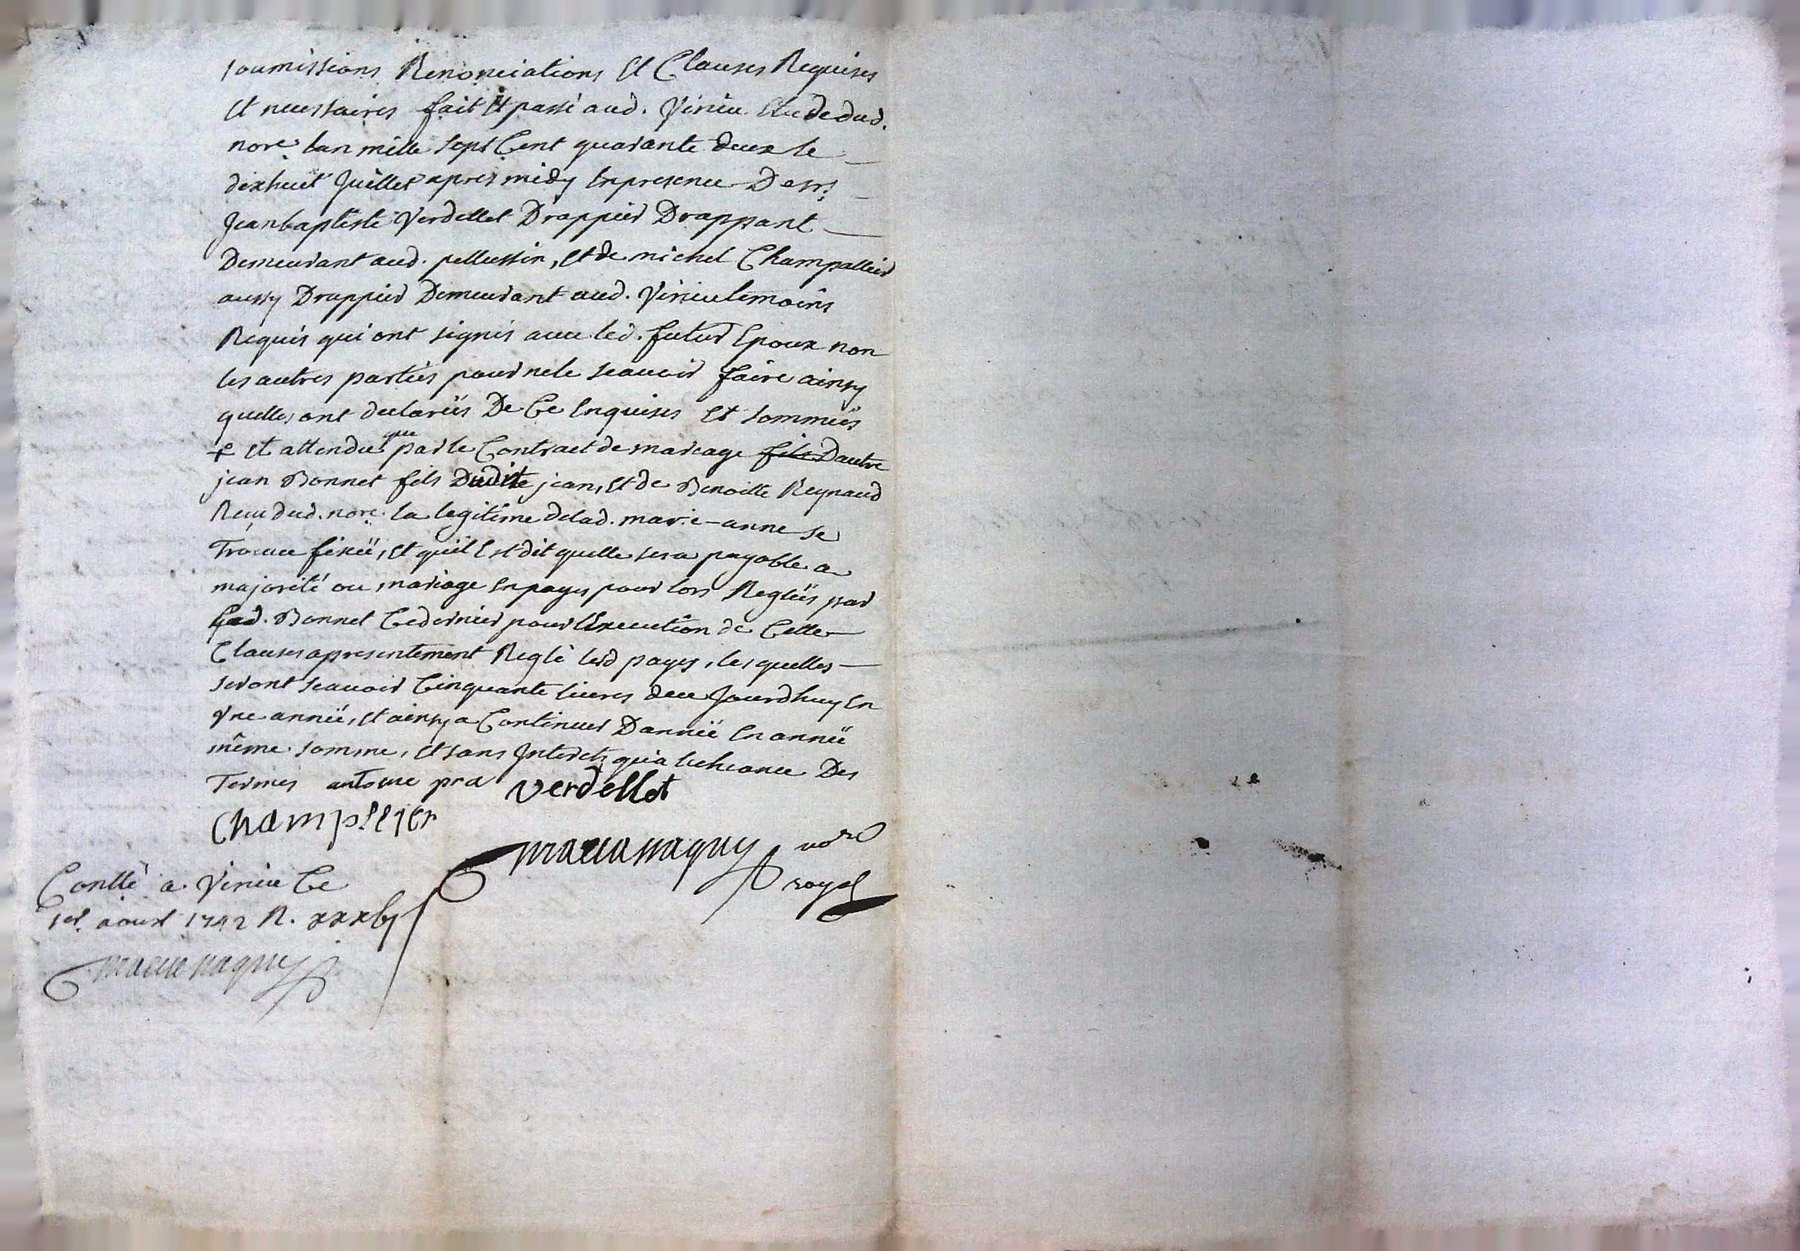 soumissions Renonciations Et Clauses Requises
Et necessaires fait Et passé aud. Virieu Etude dud.
nore. lan mille sept Cent quarante deux le
dixhuit Juillet apres midy En presence De sr.
Jean baptiste Verdellet Drappier Drappant
Demeurant aud. pellussin, Et de michel Champallier
aussy Drappier Demeurant aud. Virieu temoins
Requis qui ont signés avec led. futur Epoux non
les autres parties pour ne le scavoir faire ainsy
quelles ont declarées De Ce Enquises Et sommées
+ Et attendu que par le Contract de mariage fils Dautre
jean Bonnet fils Dudit jean, Et de Benoitte Reynaud
Receu dud. nore. la legitime de lad. marie-anne se
Trouve fixée, Et quil Est dit quelle sera payable a
majorité ou mariage En payes pour lors Reglées par
led. Bonnet Ce dernier pour lExecution de Cette
Clauses a presentement Reglé lesd payes, les quelles
seront scavoir Cinquante livres de ce Jourdhuy En
Vne année, Et ainsy a Continuer Dannée En année
même somme, Et sans Interets qu'a Echeance Des
Termes antoine pra verdellet
Champllier
nore
royal
Contllé a Virieu Ce
1er. aoust 1742 R.